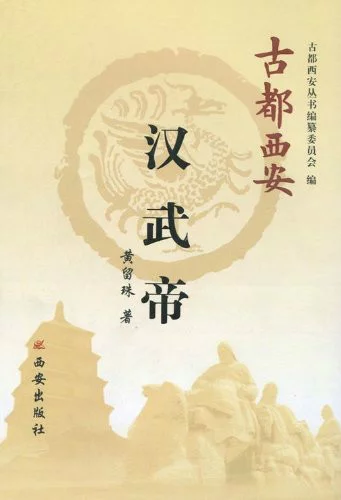 古都西安丛书编纂委员会 编
古都西安
汉武帝
黄留珠 著
西安出版社